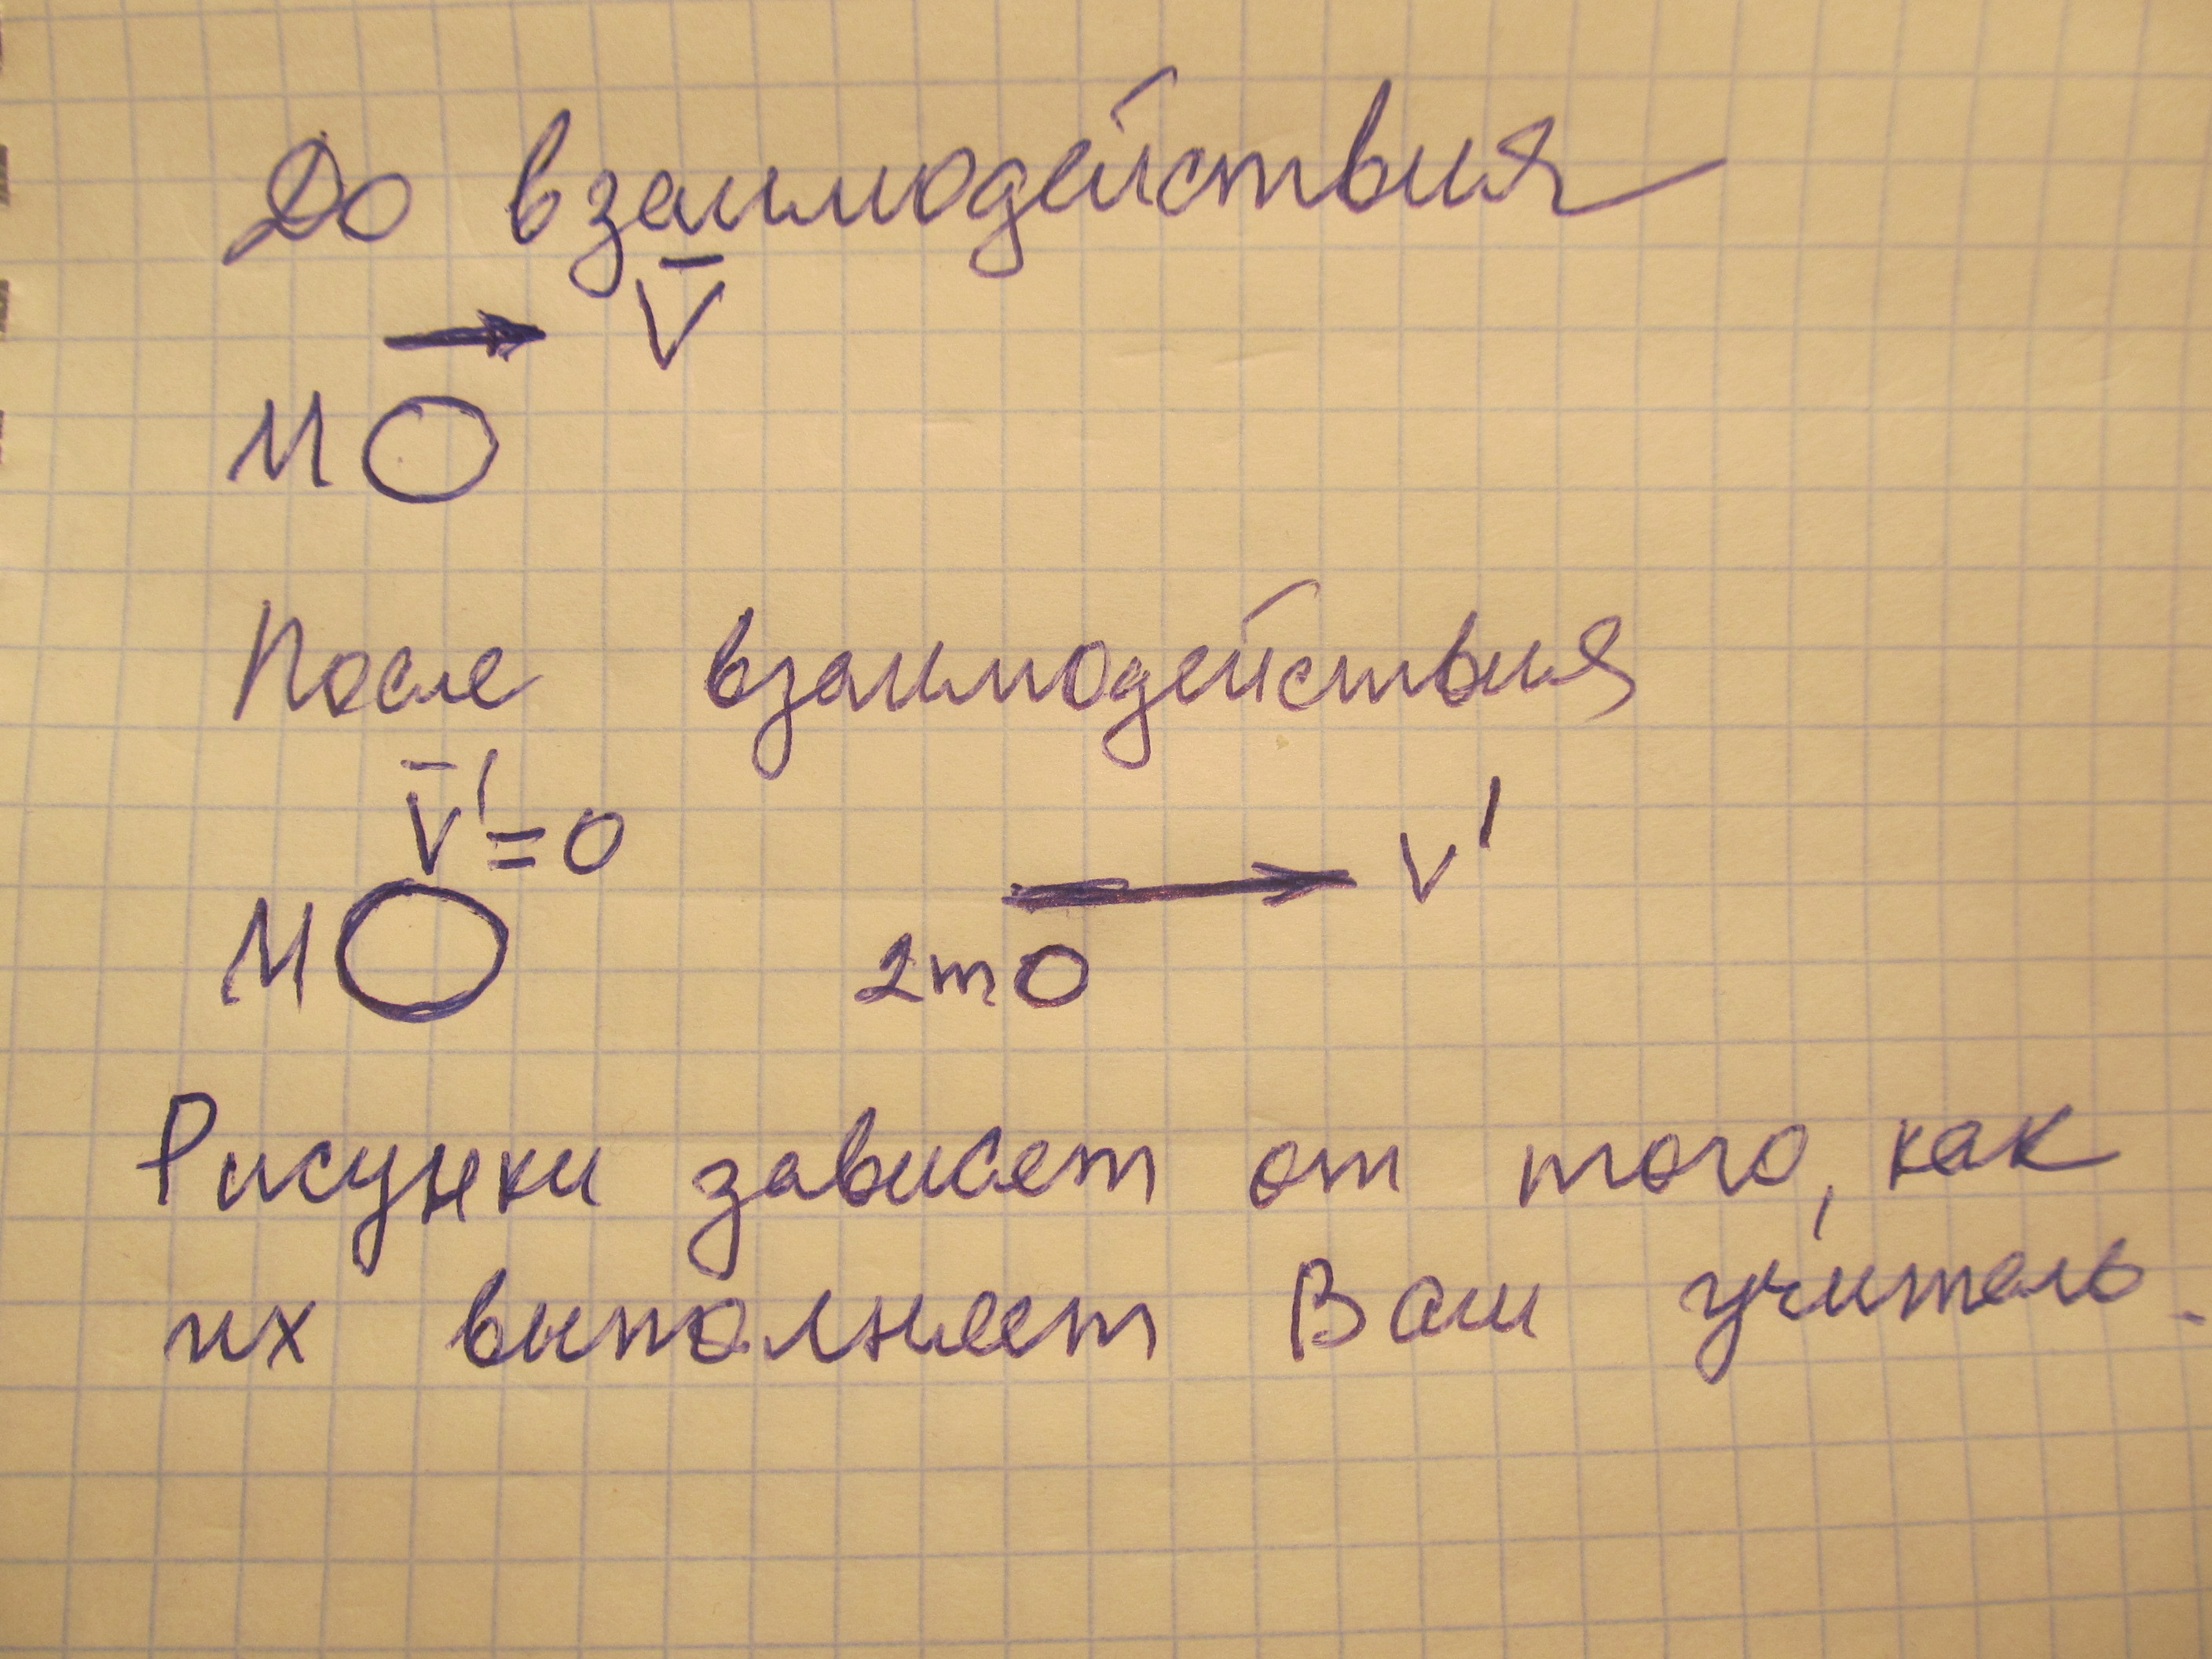 До взаимодействия
V̄
М
После взаимодействия
V̄'=0 V'
М 2m
Рисунки зависет от того, как
их выполнеет Ваш учитель.